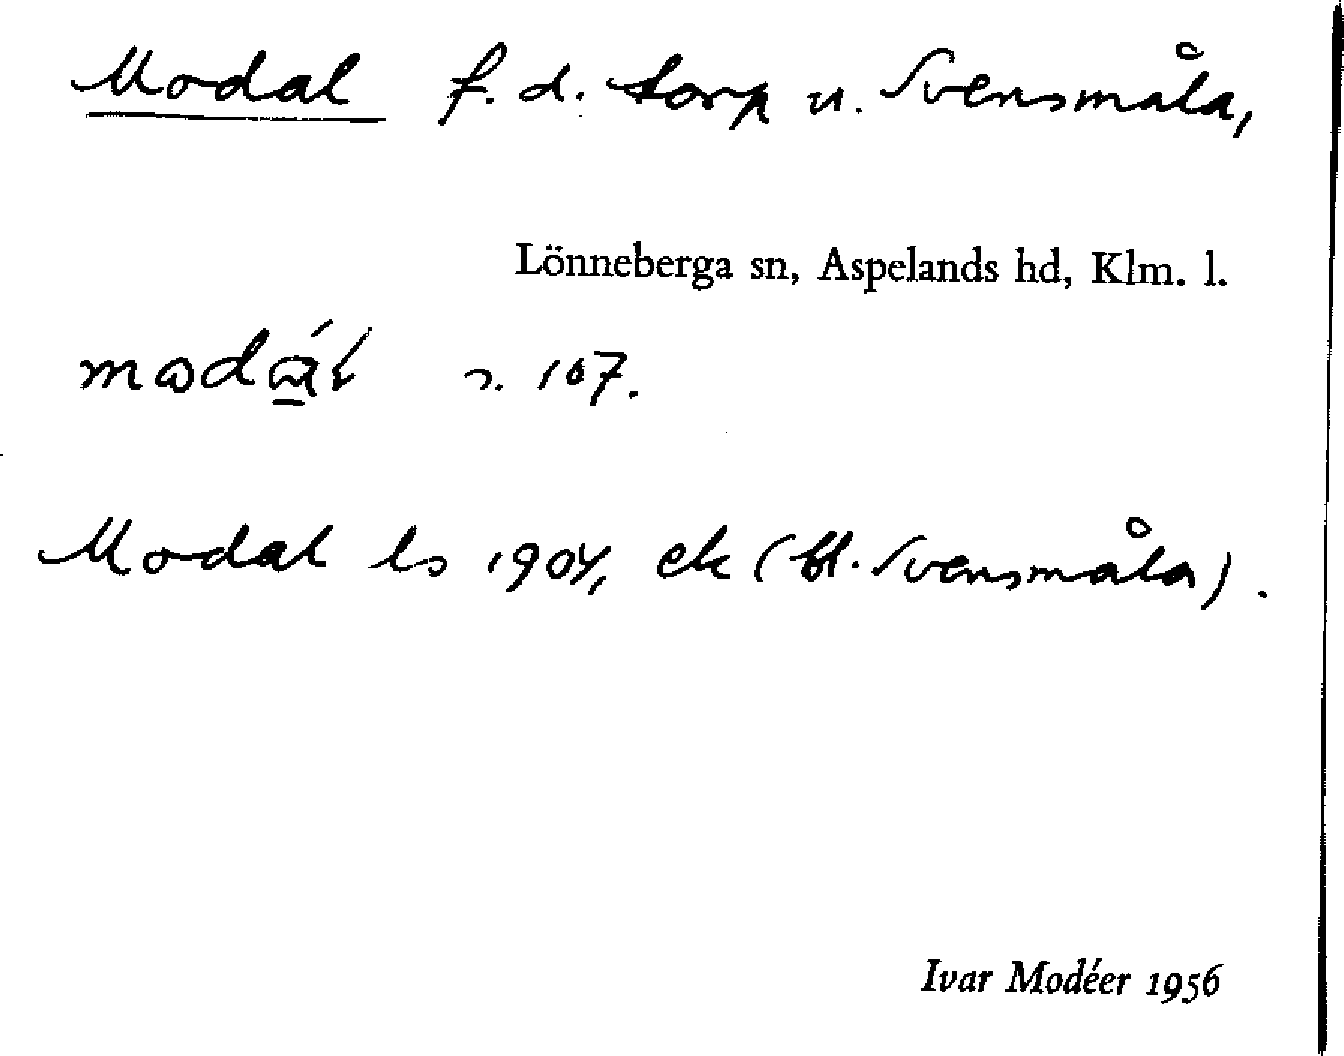 Modal f.d. torp u. Svensmåla,
Lönneberga sn, Aspelands hd, Klm. l.
s. 107.
Modal ls 1904, ek (bl. Svensmåla).
Ivar Modéer 1956